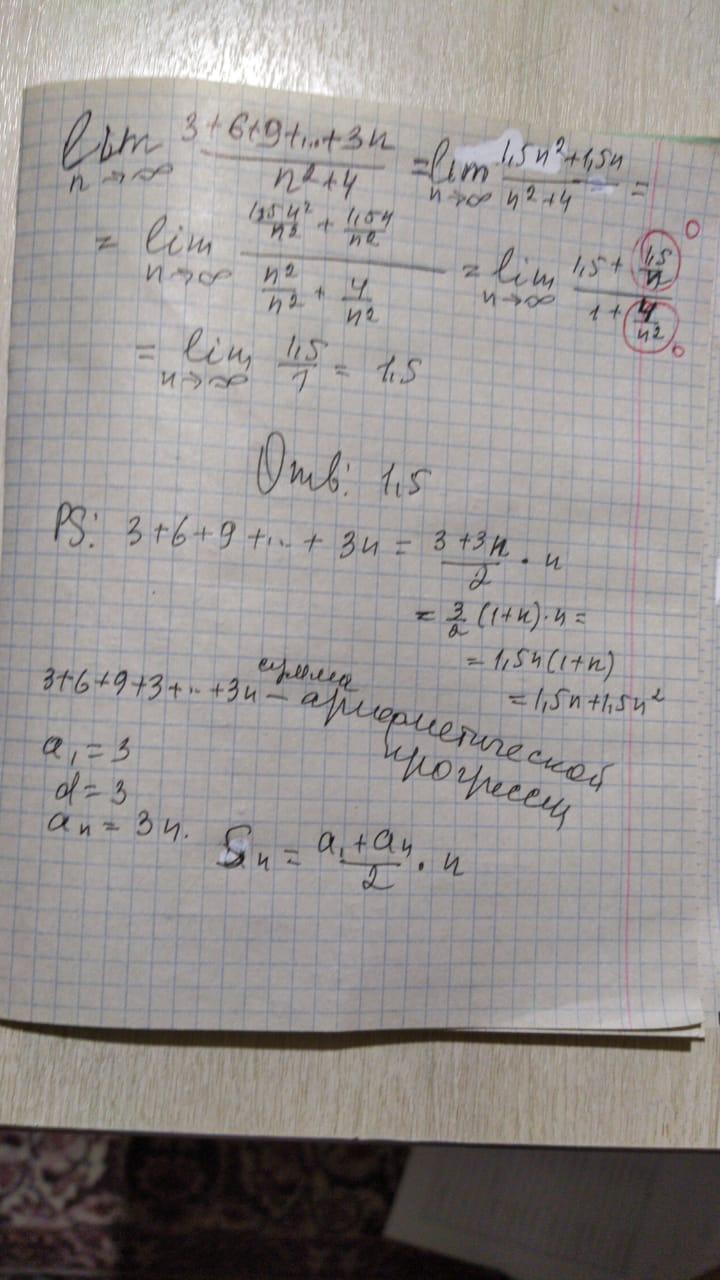 lim n→∞ (3+6+9+...+3n)/(n²+4) = lim n→∞ (1,5n²+1,5n)/(n²+4) =
= lim n→∞ (1,5n²/n² + 1,5n/n²)/(n²/n² + 4/n²) = lim n→∞ (1,5 + 1,5/n)/(1 + 4/n²) 0 0
= lim n→∞ 1,5/1 = 1,5
Отв: 1,5
PS: 3+6+9+...+3n = (3+3n)/2 · n
= 3/2 (1+n)·n =
= 1,5n(1+n)
= 1,5n+1,5n²
3+6+9+3+...+3n – сумма арифметической
прогрессии
a₁ = 3
d = 3
aₙ = 3n.
Sₙ = (a₁+aₙ)/2 · n